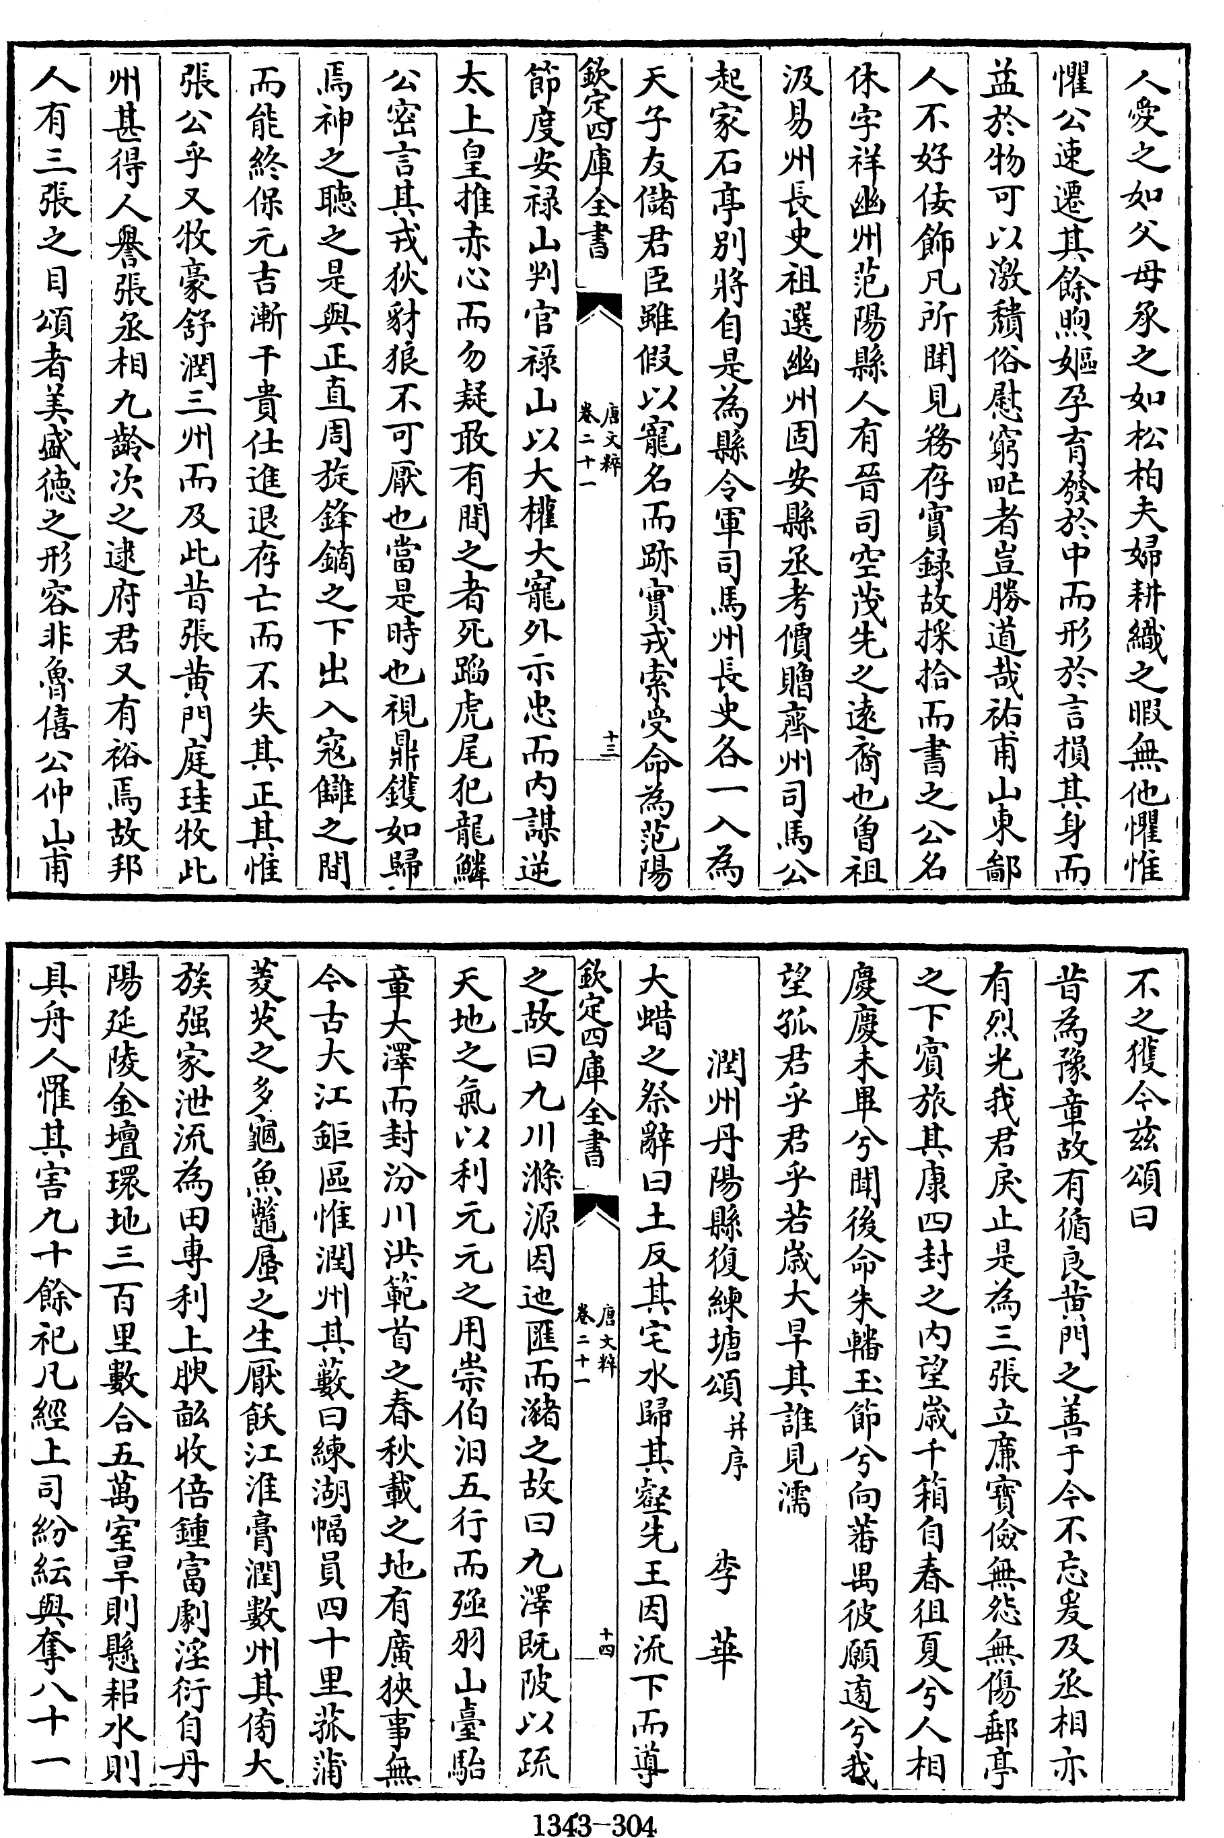 人愛之如父母承之如松柏夫婦耕織之暇無他懼惟
懼公速遷其餘煦嫗孕育發於中而形於言損其身而
益於物可以激穨俗慰窮甿者豈勝道哉祐甫山東鄙
人不好佞飾凡所聞見務存實録故採拾而書之公名
休字祥幽州范陽縣人有晉司空茂先之逺裔也曾祖
汲易州長史祖選幽州固安縣丞考價贈齊州司馬公
起家石亭别將自是為縣令軍司馬州長史各一入為
天子友儲君臣雖假以寵名而跡實戎索受命為范陽
欽定四庫全書
唐文粹
卷二十一
十三
節度安禄山判官禄山以大權大寵外示忠而内謀逆
太上皇推赤心而勿疑敢有間之者死蹈虎尾犯龍鱗
公密言其戎狄豺狼不可厭也當是時也視鼎鑊如歸
焉神之聽之是與正直周旋鋒鏑之下出入寇讎之間
而能終保元吉漸干貴仕進退存亡而不失其正其惟
張公乎又牧豪舒潤三州而及此昔張黄門庭珪牧此
州甚得人譽張丞相九齡次之逮府君又有裕焉故邦
人有三張之目頌者美盛德之形容非魯僖公仲山甫
不之獲今兹頌曰
昔為豫章故有循良黄門之善于今不忘爰及丞相亦
有烈光我君戾止是為三張立廉寶儉無怨無傷郵亭
之下賓旅其康四封之内望嵗千箱自春徂夏兮人相
慶慶未畢兮聞後命朱轓玉節兮向蕃禺彼願適兮我
望孤君乎君乎若嵗大旱其誰見濡
潤州丹陽縣復練塘頌并序 李華
大蜡之祭辭曰土反其宅水歸其壑先王因流下而導
欽定四庫全書
唐文粹
卷二十一
十四
之故曰九川滌源因迆匯而瀦之故曰九澤既陂以疏
天地之氣以利元元之用崇伯汨五行而殛羽山臺駘
章大澤而封汾川洪範首之春秋載之地有廣狹事無
今古大江鉅區惟潤州其藪曰練湖幅員四十里菰蒲
菱芡之多龜魚鼈蜃之生厭飫江淮膏潤數州其傍大
族强家泄流為田專利上腴畝收倍鍾富劇淫衍自丹
陽延陵金壇環地三百里數合五萬室旱則懸耜水則
具舟人罹其害九十餘祀凡經上司紛紜與奪八十一
1343-304